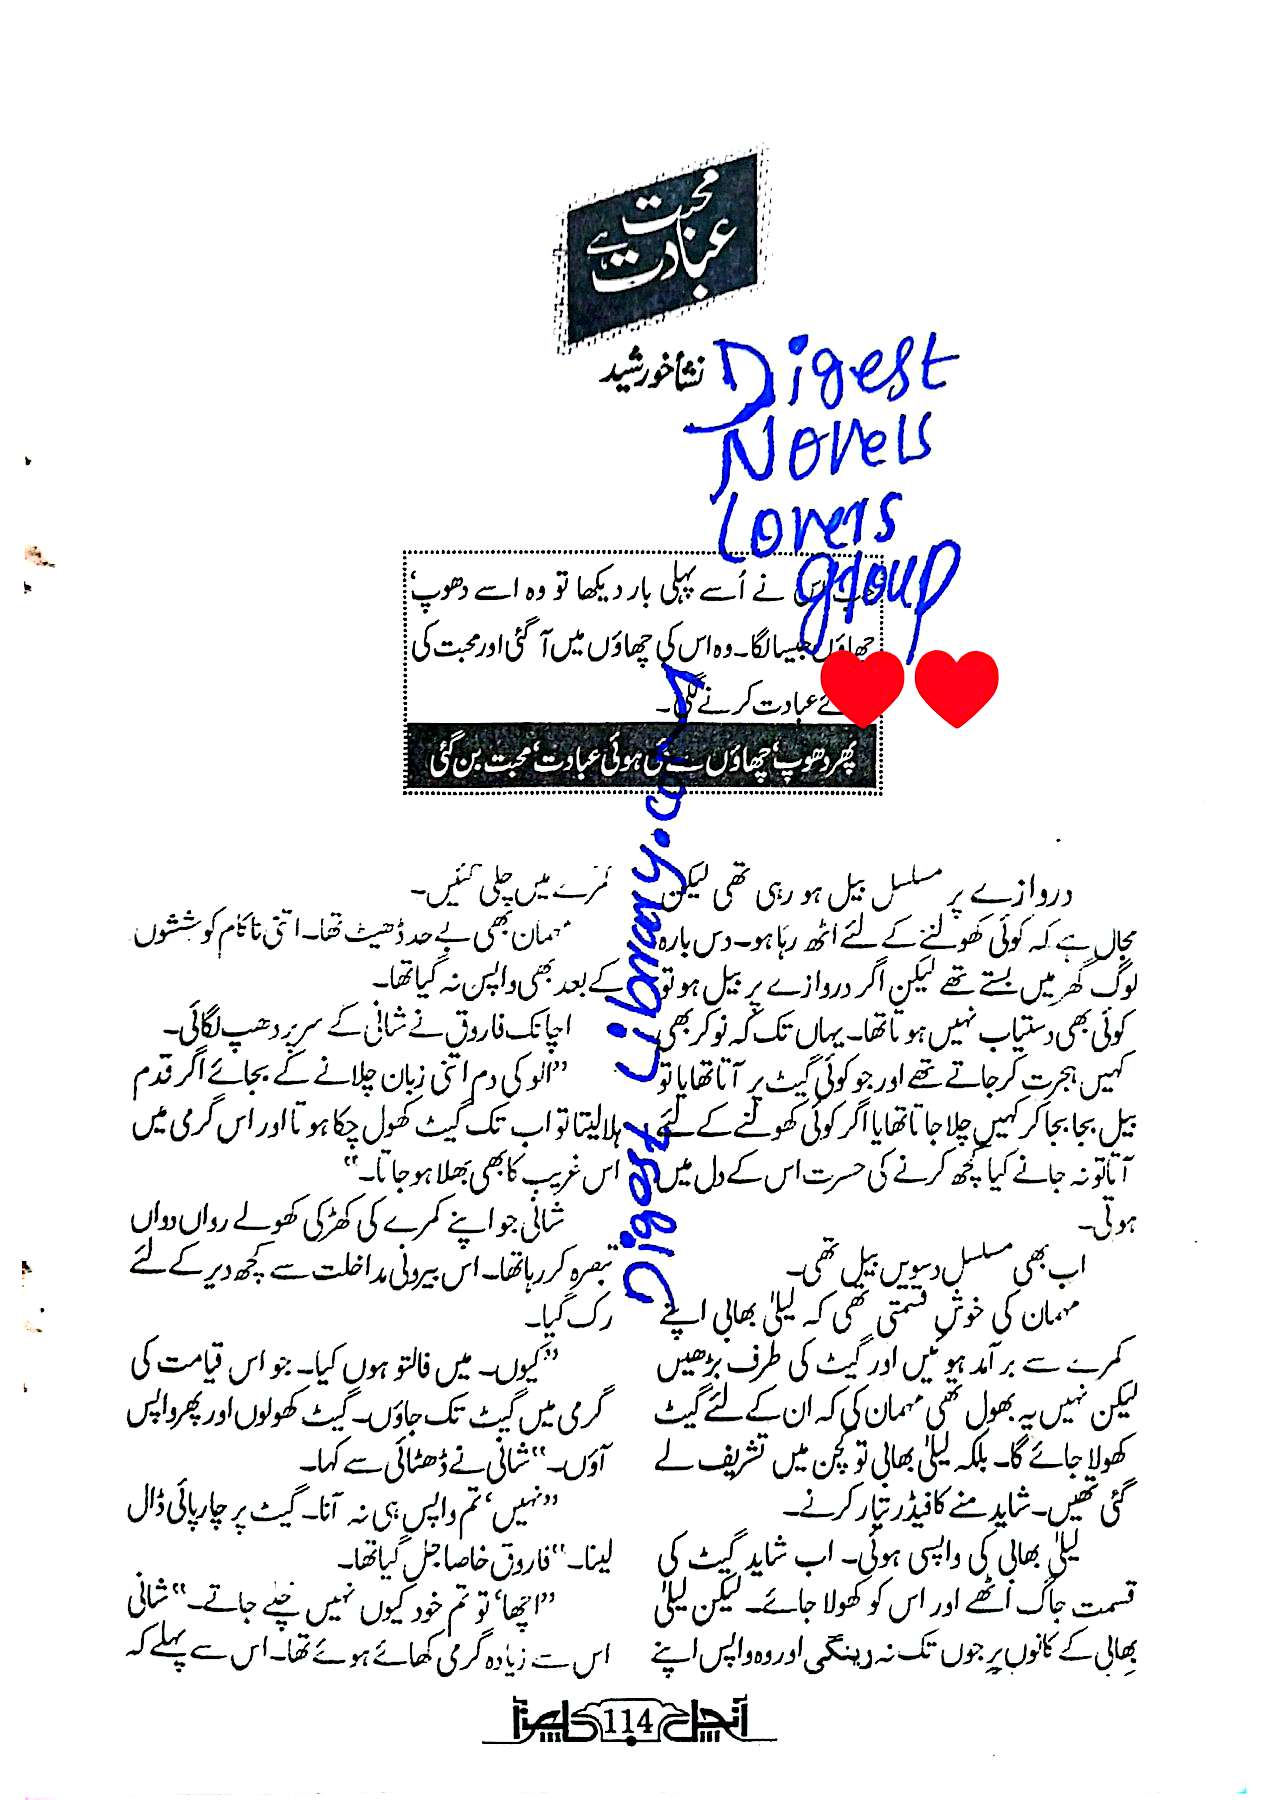 محبت
عبادت ہے
نشأ خورشید
Digest
Novels
Lovers
group
نے اُسے پہلی بار دیکھا تو وہ اسے دھوپ‘
چھاؤں جیسا لگا۔ وہ اس کی چھاؤں میں آ گئی اور محبت کی
عبادت کرنے لگی۔
پھر دھوپ‘ چھاؤں ہوئی عبادت‘ محبت بن گئی
Digest Library.com
دروازے پر مسلسل بیل ہو رہی تھی لیکن
مجال ہے کہ کوئی کھولنے کے لئے اٹھ رہا ہو۔ دس بارہ
لوگ گھر میں بستے تھے لیکن اگر دروازے پر بیل ہو تو
کوئی بھی دستیاب نہیں ہوتا تھا۔ یہاں تک کہ نوکر بھی
کہیں ہجرت کر جاتے تھے اور جو کوئی گیٹ پر آتا تھا یا تو
بیل بجا بجا کر کہیں چلا جاتا تھا یا اگر کوئی کھولنے کے لئے
آتا تو نہ جانے کیا کچھ کرنے کی حسرت اس کے دل میں
ہوتی۔
اب بھی مسلسل دسویں بیل تھی۔
مہمان کی خوش قسمتی تھی کہ لیلیٰ بھابی اپنے
کمرے سے برآمد ہوئیں اور گیٹ کی طرف بڑھیں
لیکن نہیں یہ بھول تھی مہمان کی کہ ان کے لئے گیٹ
کھولا جائے گا۔ بلکہ لیلیٰ بھابی تو کچن میں تشریف لے
گئی تھیں۔ شاید منے کا فیڈر تیار کرنے۔
لیلیٰ بھابی کی واپسی ہوئی۔ اب شاید گیٹ کی
قسمت جاگ اٹھے اور اس کو کھولا جائے۔ لیکن لیلیٰ
بھابی کے کانوں پر جوں تک نہ رینگی اور وہ واپس اپنے
کمرے میں چلی گئیں۔
مہمان بھی بے حد ڈھیٹ تھا۔ اتنی ناکام کوششوں
کے بعد بھی واپس نہ گیا تھا۔
اچانک فاروق نے شانی کے سر پر دھپ لگائی۔
”الو کی دم اتنی زبان چلانے کے بجائے اگر قدم
ہلا لیتا تو اب تک گیٹ کھول چکا ہوتا اور اس گرمی میں
اس غریب کا بھی بھلا ہو جاتا۔“
شانی جو اپنے کمرے کی کھڑکی کھولے رواں دواں
تبصرہ کر رہا تھا۔ اس بیرونی مداخلت سے کچھ دیر کے لئے
رک گیا۔
”کیوں۔ میں فالتو ہوں کیا۔ جو اس قیامت کی
گرمی میں گیٹ تک جاؤں۔ گیٹ کھولوں اور پھر واپس
آؤں۔“ شانی نے ڈھٹائی سے کہا۔
”نہیں‘ تم واپس ہی نہ آنا۔ گیٹ پر چارپائی ڈال
لینا۔“ فاروق خاصا جل گیا تھا۔
”اچھا‘ تو تم خود کیوں نہیں چلے جاتے۔“ شانی
اس سے زیادہ گرمی کھائے ہوئے تھا۔ اس سے پہلے کہ
آنچل 114 کراچی